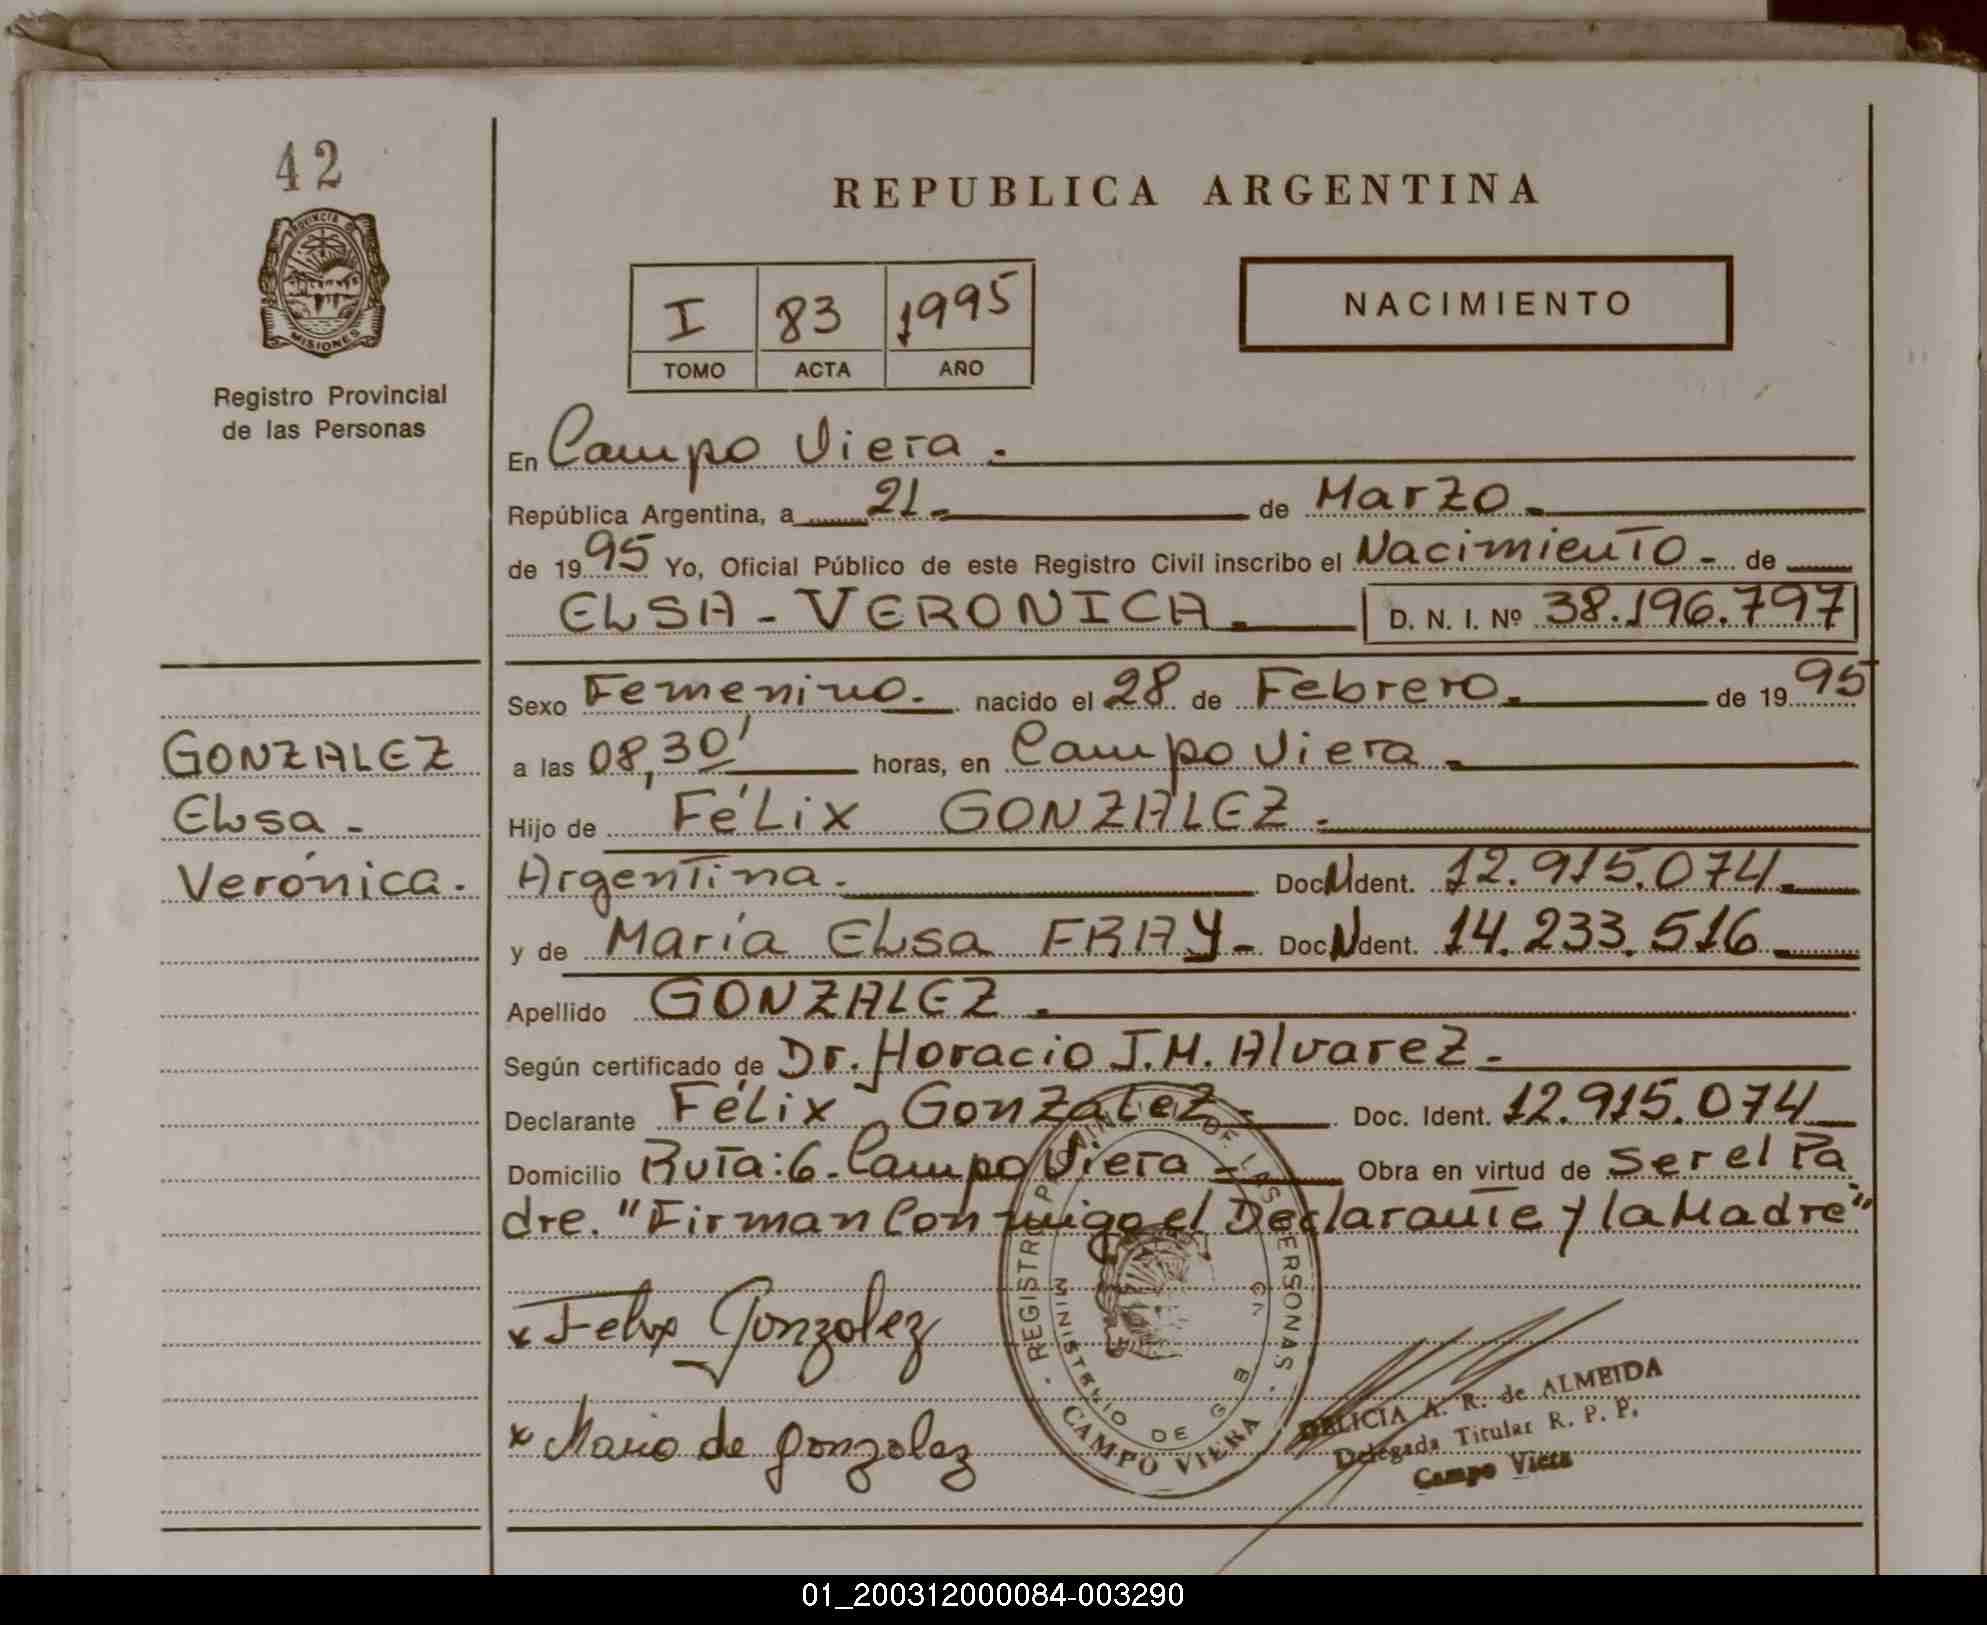 42
PROVINCIA DE
MISIONES
Registro Provincial
de las Personas
REPUBLICA ARGENTINA
I 83 1995
TOMO ACTA AÑO
NACIMIENTO
En Campo Viera.
República Argentina, a 21- de Marzo.
de 1995 Yo, Oficial Público de este Registro Civil inscribo el Nacimiento- de
ELSA - VERONICA. D. N. I. Nº 38.196.797
Sexo Femenino. nacido el 28 de Febrero. de 1995
a las 08,30' horas, en Campo Viera.
Hijo de FéLix GONZALEZ.
Argentina. Doc. Ident. 12.915.074.
y de María Elsa FRAY- Doc. Ident. 14.233.516.
Apellido GONZALEZ.
Según certificado de Dr. Horacio J.M. Alvarez-
Declarante Félix Gonzalez- Doc. Ident. 12.915.074
Domicilio Ruta:6. Campo Viera- Obra en virtud de ser el Pa
dre. "Firman Conmigo el Declarante y la Madre"
x Felix Gonzalez
x Maria de gonzalez
GONZALEZ
Elsa -
Verónica.
REGISTRO PROVINCIAL DE LAS PERSONAS
MINISTERIO DE GOB
CAMPO VIERA
DELICIA A. R. de ALMEIDA
Delegada Titular R. P. P.
Campo Viera
01_200312000084-003290